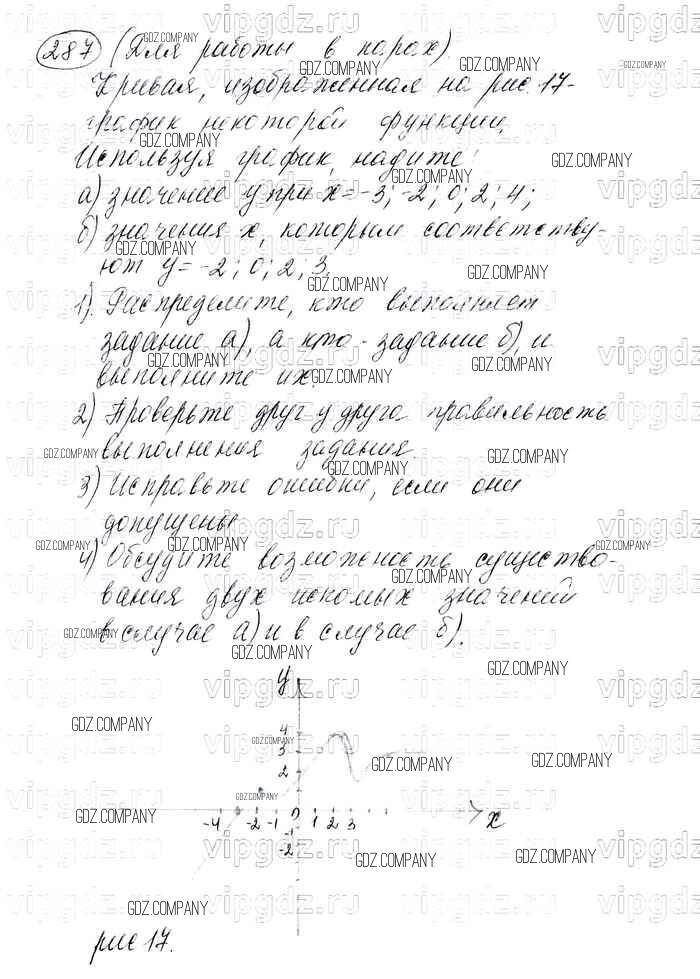 287 (Для работы в парах)
Кривая, изображенная на рис 17-
график некоторой функции,
Используя график, надите:
а) значение у при x = -3; -2; 0; 2; 4;
б) значения x, которым соответству-
ют y = -2; 0; 2; 3.
1). Распределите, кто выполняет
задание а), а кто - задание б), и
выполните их.
2) Проверьте друг у друга правильность
выполнения задания.
3) Исправьте ошибки, если они
допущены
4) Обсудите возможность существо-
вания двух искомых значений
в случае а) и в случае б).
y
4
3
2
-4 -2 -1 0 1 2 3 x
-1
-2
рис 17.
vipgdz.ru
GDZ.COMPANY